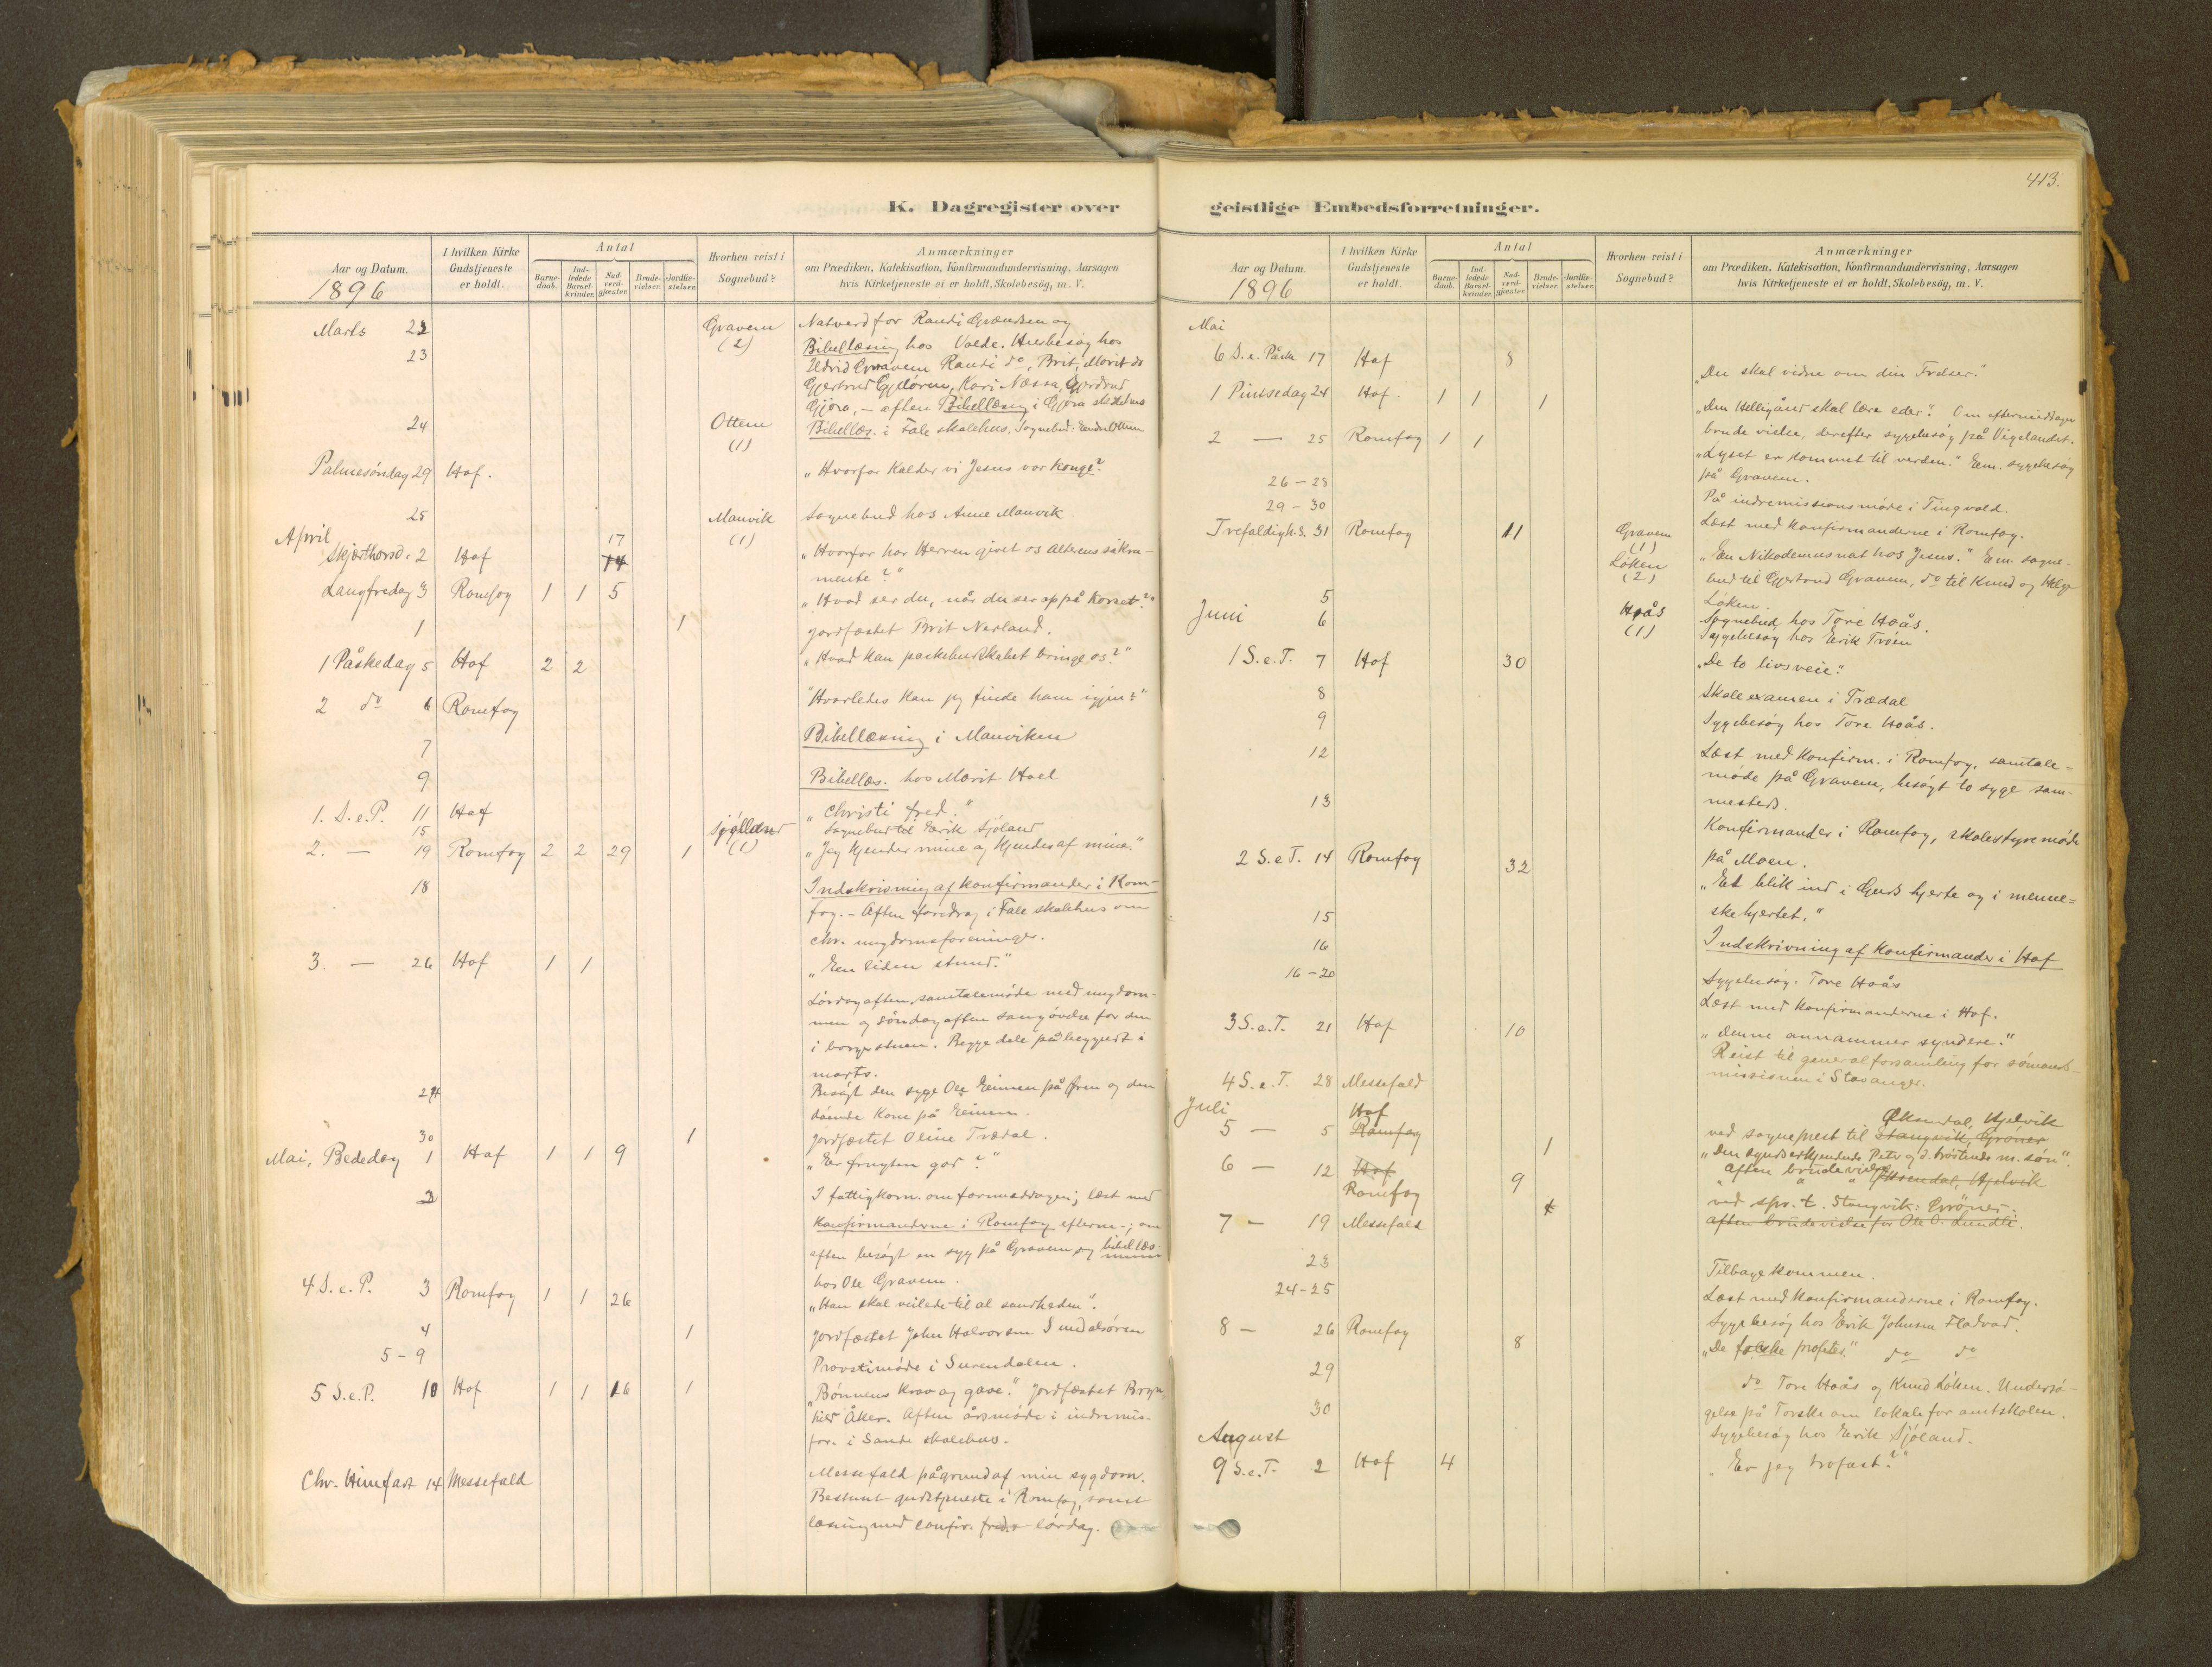 413.
K. Dagregister over geistlige Embedsforretninger.
Aar og Datum.
1896
I hvilken Kirke Gudstjeneste er holdt.
Antal
Barnedaab.
Indledede Barselkvinder.
Nadverdgjæster.
Brudevielser.
Jordfæstelser.
Hvorhen reist i Sognebud?
Anmærkninger
om Prædiken, Katekisation, Konfirmandundervisning, Aarsagen
hvis Kirketjeneste ei er holdt, Skolebesøg, m. V.
Marts 22 Gravem (2) Natverd for Randi og
23 Bibellæsning hos Husbesøg hos
Gravem Ranti do, Brit, Marit do
Gjertrud Kari Næssa,
Gjøra, – aften Bibellæsning i Gjøra
24 Ottem (1) Bibellæs. i Fale skolehus. Sognebud: Ottem
Palmesøndag 29 Hof. „Hvorfor kalder vi Jesus vor konge?
25 Mauvik (1) Sognebud hos Anne Mauvik
April
Skjærthorsd. 2 Hof 17 14 „Hvorfor har Herren givet os alterens sakra-
mente?"
Langfredag 3 Romfog 1 1 5 „Hvad ser du, når du ser op på korset?"
1 1 Jordfæstet Brit Nerland.
1 Påskedag 5 Hof 2 2 „Hvad kan paskebudskabet bringe os?"
2 do 6 Romfog "Hvorledes kan jeg finde ham igjen?"
7 Bibellæsning i Mauviken
9 Bibellæs. hos Marit Hoel
1. S.e.P. 11 Hof „Christi fred."
15 Sjølland (1) Sognebud til Erik Sjøland
2. — 19 Romfog 2 2 29 1 „Jeg kjender mine og kjendes af mine."
18 Indskrivning af konfirmander i Rom-
fog. – Aften foredrag i Fale skolehus om
chr. ungdomsforeninger.
3. — 26 Hof 1 1 „Een liden stund."
Lørdag aften samtalemøde med ungdom-
men og søndag aften sangøvelse for den
i borgerstuen. Begge dele påbegyndt i
marts.
Besøgt den syge Ole på Øren og den
døende Kone på
30 1 Jordfæstet Oline Trædal.
Mai, Bededag 1 Hof 1 1 9 „Er frugten god?"
2 I fattigkom. om formiddagen; læst med
Konfirmanderne i Romfog efterm.; om
aften besøgt en syg på Gravem og bibellæs-
hos Ole Gravem.
4 S.e.P. 3 Romfog 1 1 26 „Han skal veilede til al sandheden".
4 1 Jordfæstet John Halvorsen Sundalsøren
5 - 9 Provstimøde i Surendalen.
5 S.e.P. 10 Hof 1 1 16 1 „Bønnens krav og gave." Jordfæstet Bryn
Åker. Aften årsmøde i indremis-
for. i Sande skolehus.
Chr. Himmelfart 14 Messefald Messefald på grund af min sygdom.
Bestemt gudstjeneste i Romfog, samt
læsning med confir. fred. lørdag.
Aar og Datum.
1896
I hvilken Kirke Gudstjeneste er holdt.
Antal
Barnedaab.
Indledede Barselkvinder.
Nadverdgjæster.
Brudevielser.
Jordfæstelser.
Hvorhen reist i Sognebud?
Anmærkninger
om Prædiken, Katekisation, Konfirmandundervisning, Aarsagen
hvis Kirketjeneste ei er holdt, Skolebesøg, m. V.
Mai
6 S.e. Påsk 17 Hof 8 „Du skal vidne om din Frelser."
1 Pintsedag 24 Hof. 1 1 1 „Den Helligånd skal lære eder". Om eftermiddagen
brudevielse, derefter sygebesøg på Vigelandet.
2 — 25 Romfog 1 1 „Lyset er kommet til verden." Eem. sygebesøg
på Gravem.
26 – 28 På indremissionsmøde i Tingvold.
29 – 30 Læst med konfirmanderne i Romfog.
Trefoldigh.S. 31 Romfog 11 Gravem (1) Løken (2) „En Nikodemusnat hos Jesus." Eem. sogne-
bud til Gjertrud Gravem, do til Knud og Helge
Løken.
Juni 5 Hoås (1) Sognebud hos Tore Hoås.
6 Sygebesøg hos Erik Trøen
1 S.e.T. 7 Hof 30 „De to livsveie."
8 Skoleexamen i Trædal
9 Sygebesøg hos Tore Hoås.
12 Læst med Konfirm. i Romfog, samtale-
møde på Gravem, besøgt to syge sam-
mesteds.
13 Konfirmander i Romfog, skolestyremøde
på Moen.
2 S.e.T. 14 Romfog 32 „Et blik ind i Guds hjerte og i menne-
skehjertet."
15 Indskrivning af konfirmander i Hof
16 Sygebesøg. Tore Hoås
16 – 20 Læst med konfirmanderne i Hof.
3 S.e.T. 21 Hof 10 „denne annammer syndere."
Reist til generalforsamling for sømands-
missionen i Stavanger.
4 S.e.T. 28 Messefald
Juli
5 — 5 Hof Romfog 1 Øksendal, Hjelvik
ved sogneprest til Stangvik, Grøner
„Den syndserkjendende Peter og d. trøstende m. søn".
Aften brudevielse
6 — 12 Hof Romfog 9 Øksendal, Hjelvik
ved spr. t. Stangvik: Grøner.
aften brudevielse for Ole O. Lundli.
7 — 19 Messefald
23 Tilbagekommen.
24-25 Læst med konfirmanderne i Romfog.
Sygebesøg hos Erik Johnsen Flodvad.
8 — 26 Romfog 8 „De falske profeter." do do
29 do Tore Hoås og Knud Løken. Undersø-
gelse på Torske om lokale for amtskolen.
30 Sygebesøg hos Erik Sjøland.
August
9 S.e.T. 2 Hof 4 „Er jeg trofast?"